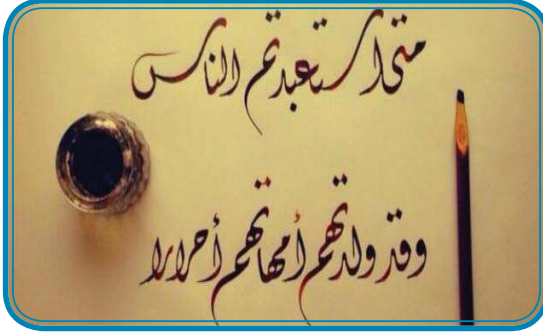 متى استعبدتم الناس
وقد ولدتهم أمهاتهم أحرارا